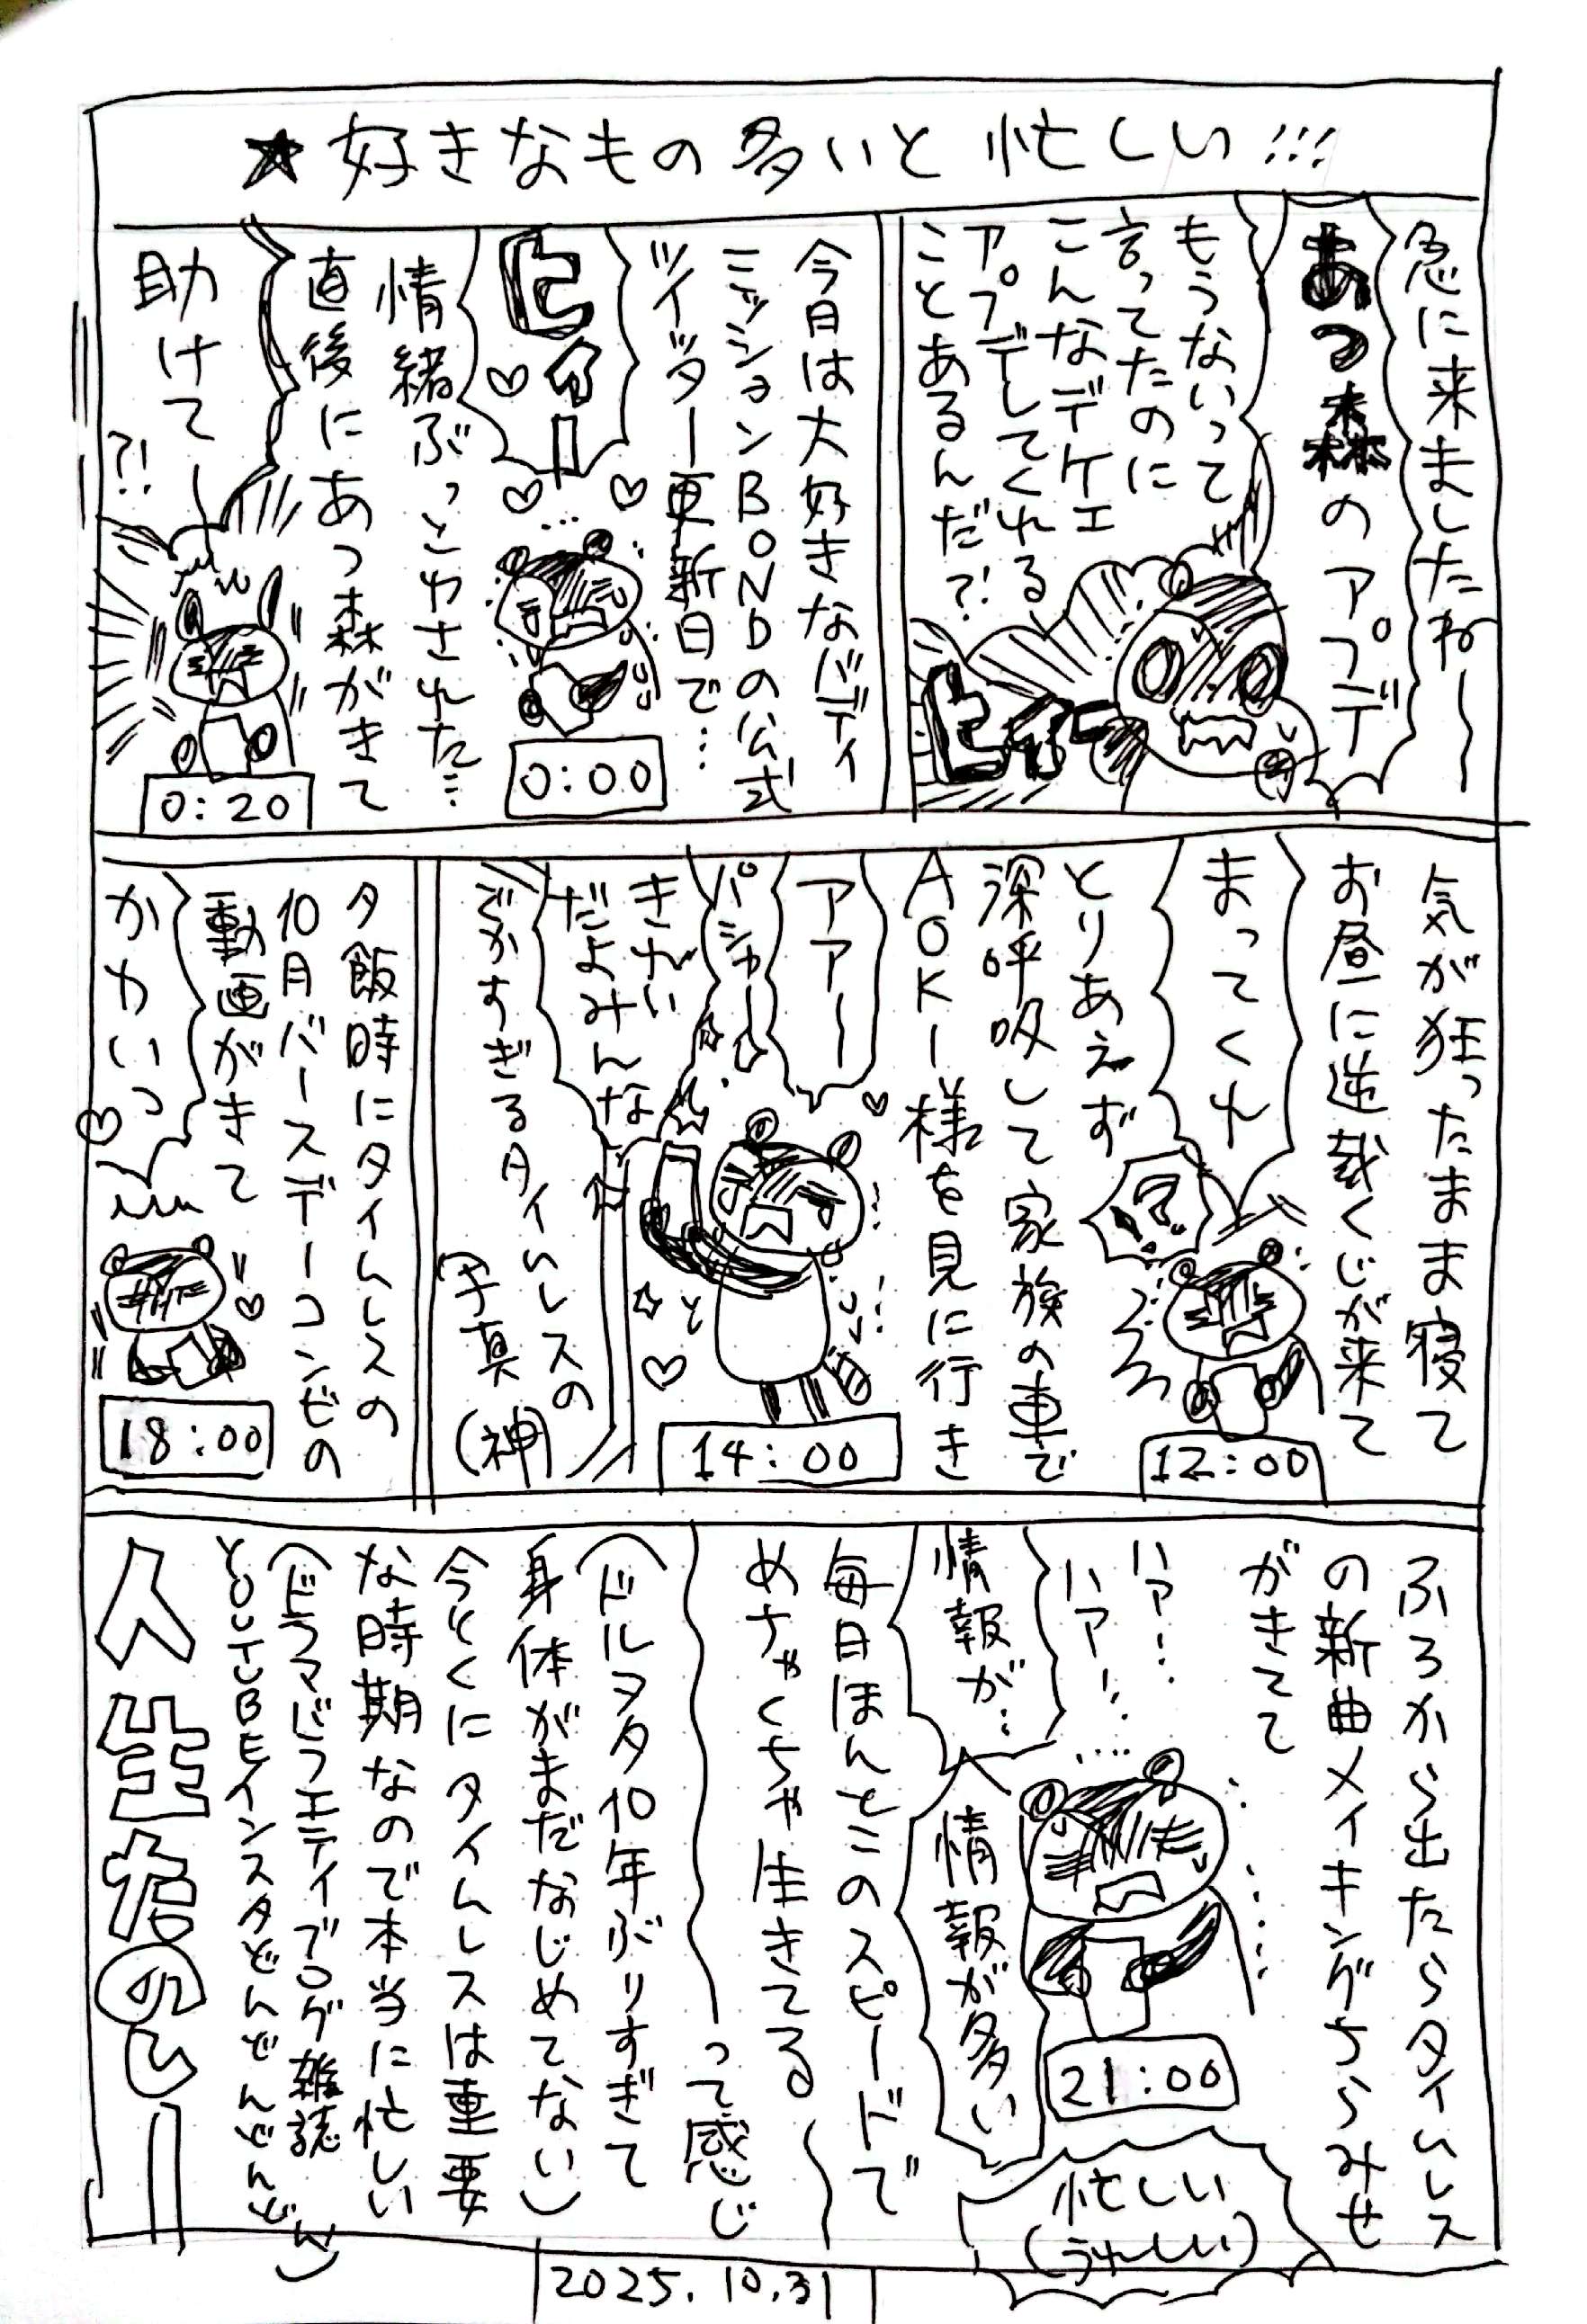 ★好きなもの多いと忙しい!!!
急に来ましたね〜
あつ森のアプデ
もうないって
言ってたのに
こんなデケェ
アプデしてくれる
ことあるんだ?!
ヒィー
今日は大好きなバディ
ミッションBONDの公式
ツイッター更新日で…
ヒィー
0:00
情緒ぶっこわされた…
直後にあつ森がきて
助けてー
?!
0:20
気が狂ったまま寝て
お昼に逆裁くじが来て
まってくれ
!?
12:00
とりあえず
深呼吸して家族の車で
AOKI様を見に行き
アアー
パシャー
きれい
だよみんな
14:00
でかすぎるタイムレスの
写真(神)
夕飯時にタイムレスの
10月バースデーコンビの
動画がきて
かわいっ
18:00
ふろから出たらタイムレス
の新曲メイキングちらみせ
がきてて
ハァ…
ハァ…
情報が…
情報が多い
21:00
忙しい
(うれしい)
毎日ほんとこのスピードで
めちゃくちゃ生きてる
って感じ
(ドルヲタ10年ぶりすぎて
身体がまだなじめてない)
今とくにタイムレスは重要
な時期なので本当に忙しい
(ドラマバラエティブログ雑誌
YOUTUBEインスタどんどんどんどん)
人生たのしー
2025.10.31